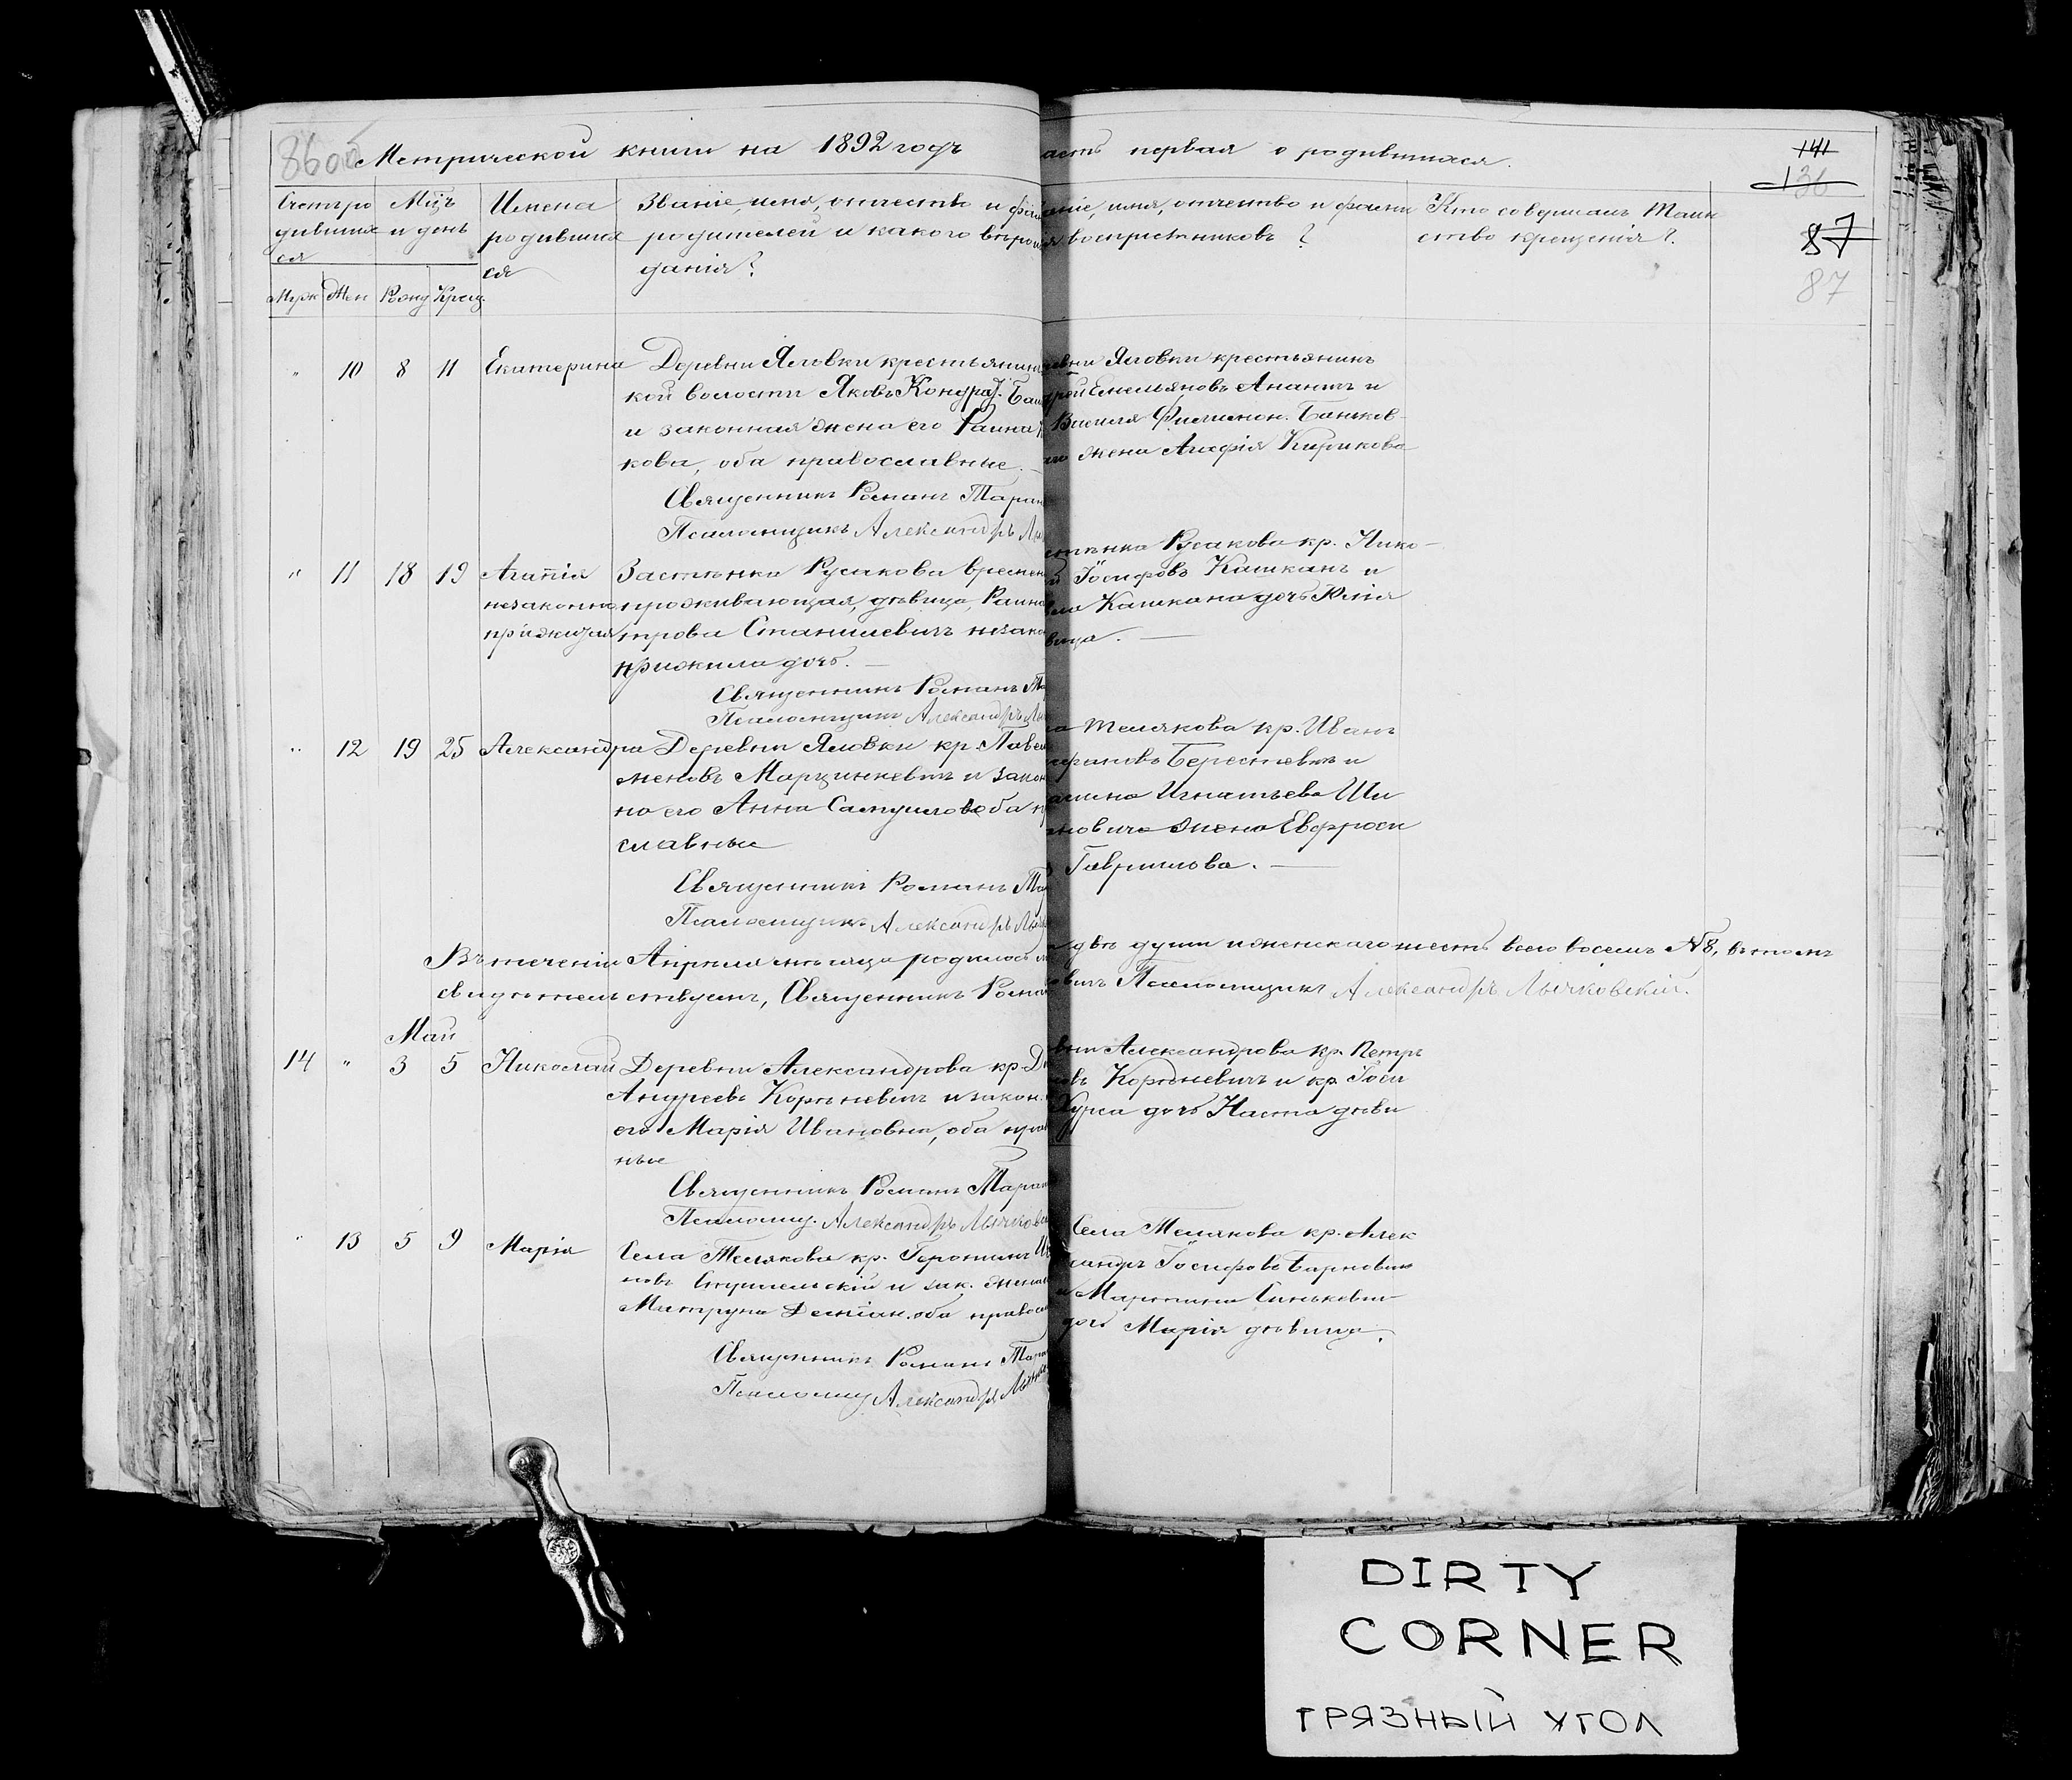 86об Метрической книги на 1892 годъ
асть первая о родившихся.
141
136
87
87
Счетъ ро
дивших
ся
Мцъ
и день
Имена
родивших
ся
Званіе, имя, отчество и фам
родителей и какого вѣроис
данія?
аніе, имя, отчество и фамил
воспріемниковъ?
Кто совершалъ Таин
ство крещенія?
Муж Жен Рожд Крещ.
" 10 8 11 Екатерина Деревни Яловки крестьянинъ
кой волости Яковъ Кондрат. Бань
и законная жена его Раина
кова, оба православные.
Священникъ Романъ Таран
Псаломщикъ Александръ Лы
вни Яловки крестьянинъ
рей Емельяновъ Ананичъ и
Василя Филимон. Баньков-
го жена Агафія Кирикова
" 11 18 19 Агапія Застѣнка Русакова времен
незаконно проживающая, дѣвица, Раина
прижитая трова Станилевичъ незако
прижила дочь.
Священникъ Романъ Та
Псаломщикъ Александръ Лы
стѣнка Русакова кр. Нико-
й Іосифовъ Кашканъ и
Кашкана дочь Юлія
вица.
" 12 19 25 Александра Деревни Яловки кр. Павел
меновъ Марцинкевичъ и закон
на его Анна Самуилова оба п
славные
Священникъ Романъ Та
Псаломщикъ Александръ Лы
ла Телякова кр. Иванъ
ефановъ Берестевичъ и
Игнатьева Ши
новича жена Евфроси
Гаврилова.
Въ теченіи Апрѣля мѣсяца родилось м
двѣ души и женскаго шесть всего восемь № 8, въ томъ
свидѣтельствуемъ, Священникъ Роман
овичъ Псаломщикъ Александръ Лычковскій.
Май
14 " 3 5 Николай Деревни Александрова кр. Д
Андреевъ Корѣневичъ и закон.
его Марія Ивановна, оба прав
ные
Священникъ Романъ Таран
Псаломщ. Александръ Лычков
вни Александрова кр. Петръ
овъ Корѣневичъ и кр. Іоси
Курса дочь Наста дѣви
" 13 5 9 Марія Села Телякова кр. Геронимъ Ив
новъ и зак. жена
Матруна Деміян. оба правос
Священникъ Романъ Таран
Псаломщ Александръ Лычк
Села Телякова кр. Алек
сандръ Іосифовъ Барновичъ
и Мартина Синькевич
дочь Марія дѣвица.
DIRTY
CORNER
ГРЯЗНЫЙ УГОЛ